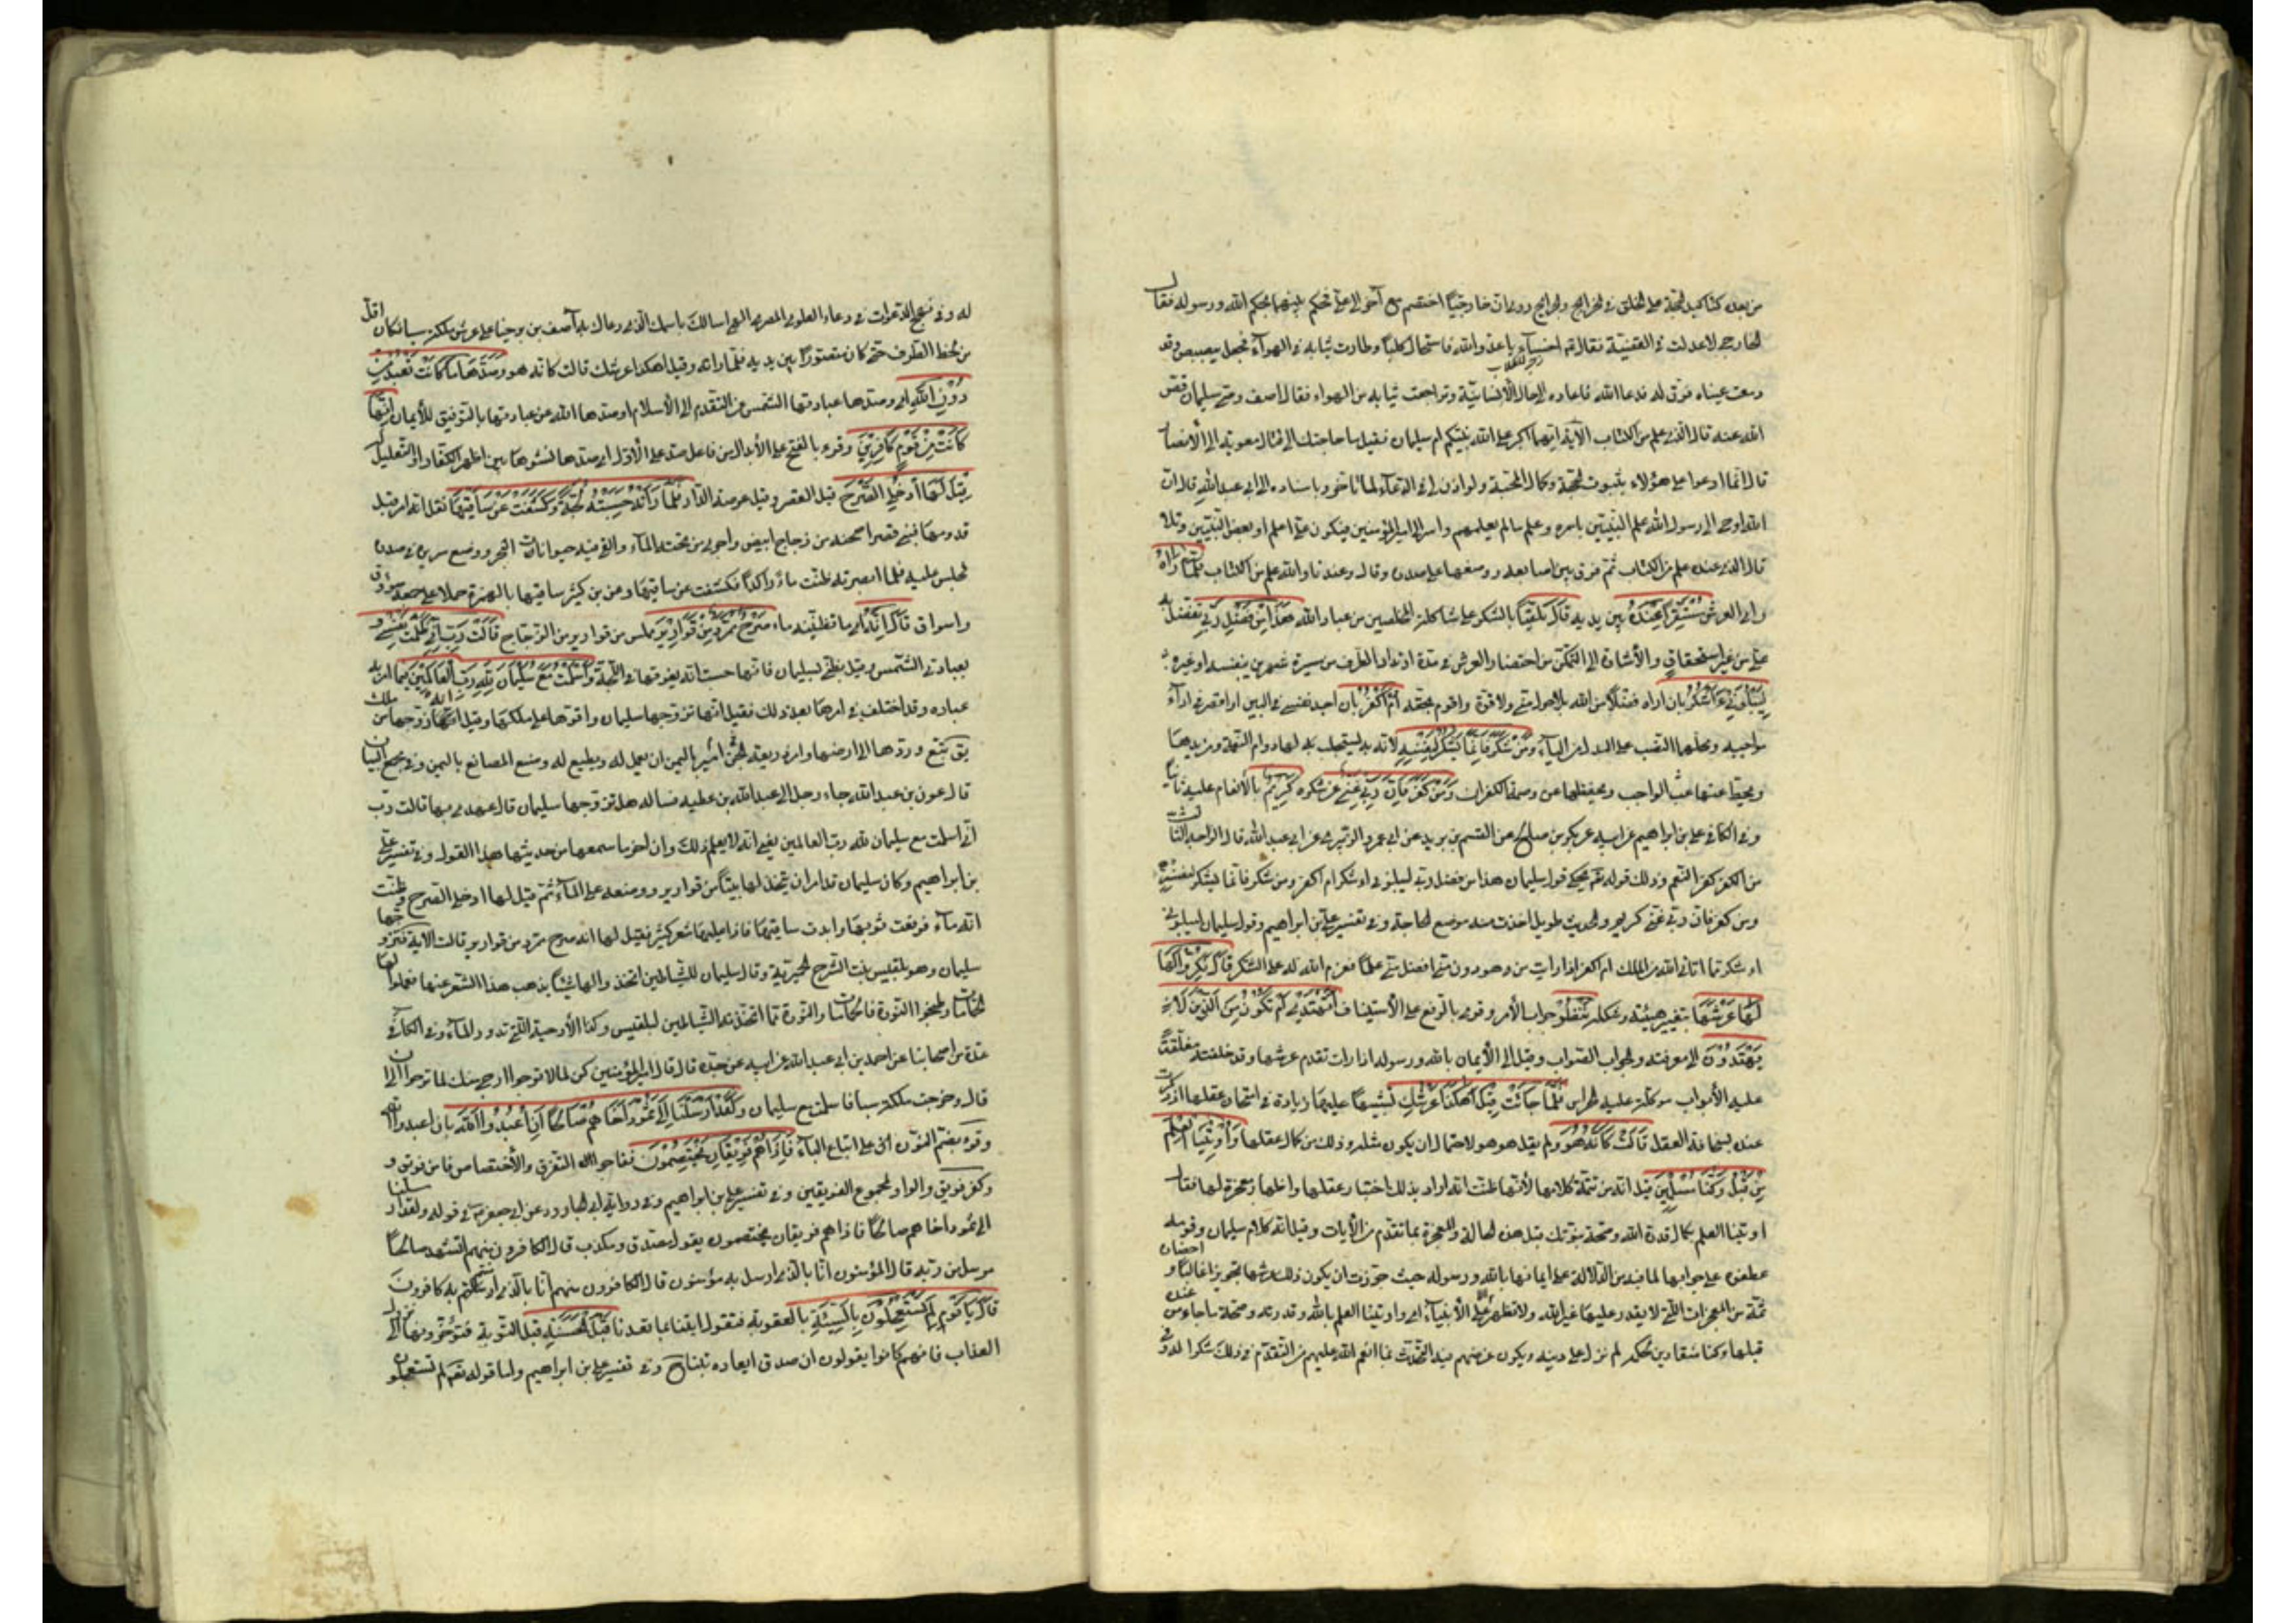 من بعده كتاكيد الحجة على الخلق وفي الخرايج والجرايح روى ان خارجيا اختصم مع آخر الى علي فحكم بينهما بحكم الله ورسوله فقال
الخارجي لا عدلت في القضية فقال ثم اخسأ يا عدو الله فاستحال كلبا وطارت ثيابه في الهوآء فجعل يبصبص وقد
دمعت عيناه فرق له فدعا الله فاعاده الى حال الأنسانية وتراجعت ثيابه من الهواء فقال آصف وصي سليمان قص
الله عنه قال الذي عنده علم من الكتاب الآية ايهما اكبر على الله نبيكم ام سليمان فقيل ما حاجتك الى قتال معوية الى الأنصار
قال انما ادعوا على هؤلاء بثبوت الحجة وكمال المحنة ولو اذن لي في الدعآء لما تأخر وباسناده الى ابي عبد الله قال ان
الله اوحى الى رسول الله علم النبيين باسره وعلم ما لم يعلمهم واسر الى امير المؤمنين فيكون علي اعلم او بعض النبيين وتلا
قال الذي عنده علم من الكتاب ثم فرق بين اصابعه ووضعها على صدره وقال وعندنا والله علم من الكتاب فَلَمَّا رَآهُ
راى العرش مُسْتَقِرًّا عِنْدَهُ بين يديه قَالَ تلقيا بالشكر على شاكلة المخلصين من عباد الله هَذَا مِنْ فَضْلِ رَبِّي تفضل به
علي من غير استحقاق والأشارة الى التمكن من احضار العرش في مدة ارتداد الطرف من مسيرة شهرين بنفسه او غيره
لِيَبْلُوَنِي ءَأَشْكُرُ بان اراه فضلا من الله بلا حول مني ولا قوة واقوم بحقه أَمْ أَكْفُرُ بان اجد نفسي في البين او اقصر في ادآء
مواجبه ومحلها النصب على البدل من اليآء وَمَنْ شَكَرَ فَإِنَّمَا يَشْكُرُ لِنَفْسِهِ لانه به يستجلب لها دوام النعمة ومزيدها
ويحط عنها عبء الواجب ويحفظها عن وصمة الكفران وَمَنْ كَفَرَ فَإِنَّ رَبِّي غَنِيٌّ عن شكره كَرِيمٌ بالأنعام عليه ثانيا
وفي الكافي علي بن ابراهيم عن ابيه عن بكر بن صالح عن القسم بن بريد عن ابي عمرو الزبيري عن ابي عبد الله قال الوجه الثالث
من الكفر كفر النعم وذلك قوله تعم يحكي قول سليمان هذا من فضل ربي ليبلوني ءاشكر ام اكفر ومن شكر فانما يشكر لنفسه
ومن كفر فان ربي غني كريم والحديث طويل اخذت منه موضع الحاجة وفي تفسير علي بن ابراهيم وقول سليمان ليبلوني
ءاشكر لما اتاني الله من الملك ام اكفر اذا رايت من هو دون مني افضل مني علما فعزم الله له على الشكر قَالَ نَكِّرُوا لَهَا
لَهَا عَرْشَهَا بتغيير هيئته وشكله نَنْظُرْ جواب الأمر وقرى بالرفع على الأستيناف أَتَهْتَدِي أَمْ تَكُونُ مِنَ الَّذِينَ لَا
يَهْتَدُونَ الى معرفته والجواب الصواب وقيل الى الأيمان بالله ورسوله اذا رات تقدم عرشها وقد خلفته مغلقة
عليه الأبواب موكلة عليه الحراس فَلَمَّا جَاءَتْ قِيلَ أَهَكَذَا عَرْشُكِ تشبيها عليها زيادة في امتحان عقلها اذ ذكرت
عنده بسخافة العقل قَالَتْ كَأَنَّهُ هُوَ ولم يقل هو هو لاحتمال ان يكون مثله وذلك من كمال عقلها وَأُوتِينَا الْعِلْمَ
مِنْ قَبْلِهَا وَكُنَّا مُسْلِمِينَ قيل انه من تتمة كلامها لأنها ظنت انه اراد بذلك اختبار عقلها واظهار معجزة لها فقالت
اوتينا العلم بكمال قدرة الله وصحة نبوتك قبل هذه الحالة والمعجزة بما تقدم من الآيات وقيل انه كلام سليمان وقومه
عطفوه على جوابها لما فيه من الدلالة على ايمانها بالله ورسوله حيث جوزت ان يكون ذلك عرشها تجويزا غالبا واحضاره
ثمة من المعجزات التي لا يقدر عليها غير الله ولا تظهر الا على الأنبيآء اي واوتينا العلم بالله وقدرته وصحة ما جاء من عنده
قبلها وكنا منقادين لحكمه لم نزل على دينه ويكون غرضهم فيه التحدث بما انعم الله عليهم من التقدم في ذلك شكرا له
له وفي نهج الدعوات في دعاء العلوي المصري الهي اسالك باسمك الذي دعاك به آصف بن برخيا على عرش ملكة سبا فكان اقل
من لحظ الطرف حتى كان مصورا بين يديه فلما راته وقيل اهكذا عرشك قالت كانه هو وَصَدَّهَا مَا كَانَتْ تَعْبُدُ مِنْ
دُونِ اللَّهِ اي وصدها عبادتها الشمس عن التقدم الى الأسلام او صدها الله عن عبادتها بالتوفيق للأيمان إِنَّهَا
كَانَتْ مِنْ قَوْمٍ كَافِرِينَ وقرء بالفتح على الأبدال من فاعل صد على الأول اي صدها نشؤها بين اظهر الكفار او التعليل له
قِيلَ لَهَا ادْخُلِي الصَّرْحَ قيل القصر وقيل عرصة الدار فَلَمَّا رَأَتْهُ حَسِبَتْهُ لُجَّةً وَكَشَفَتْ عَنْ سَاقَيْهَا نقل انه امر قبل
قدومها فبني قصر صحنه من زجاج ابيض واجرى من تحته المآء والقى فيه حيوانات البحر ووضع سريره في صدره
فجلس عليه فلما ابصرته ظنت ماءً راكدا فكشفت عن ساقيها وعن بن كثير ساقيها بالهمزة حملا على جمعه سؤوق
واسواق قَالَ إِنَّهُ اي ما تظنينه ماء صَرْحٌ مُمَرَّدٌ مِنْ قَوَارِيرَ مملس من قوارير من الزجاج قَالَتْ رَبِّ إِنِّي ظَلَمْتُ نَفْسِي
بعبادتي الشمس وقيل بظني بسليمان فانها حسبت انه يغرقها في اللجة وَأَسْلَمْتُ مَعَ سُلَيْمَانَ لِلَّهِ رَبِّ الْعَالَمِينَ فيما امر به
عباده وقد اختلف في امرها بعد ذلك فقيل انها تزوجها سليمان واقرها على ملكها وقيل انه زوجها من ملك
يق له تبع وردها الى ارضها وامر زوبعة امير الجن باليمن ان يعمل له ويطيع له وصنع المصانع باليمن وفي مجمع البيان
قال عون بن عبد الله جاء رجل الى عبد الله بن عطية فساله هل تزوجها سليمان قال عهدي بها قالت رب
اني اسلمت مع سليمان لله رب العالمين يعني انه لا يعلم ذلك وان آخر ما سمعها من حديثها هذا القول وفي تفسير علي
بن ابراهيم وكان سليمان قد امر ان يتخذ لها بيتا من قوارير ووضعه على المآء ثم قيل لها ادخلي الصرح فظنت
انه مآء فرفعت ثوبها وابدت ساقيها فاذا عليها شعر كثير فقيل لها انه صرح ممرد من قوارير قالت الاية فتزوجها
سليمان وهي بلقيس بنت الشرح الحميرية وقال سليمان للشياطين اتخذوا لها شيئا يذهب هذا الشعر عنها فعملوا لها
الحمامات وطبخوا النورة فالحمامات والنورة مما اتخذته الشياطين لبلقيس وكذا الأرحية التي تدور على المآء وفي الكافي
عدة من اصحابنا عن احمد بن ابي عبد الله عن ابيه عن جده قال قال امير المؤمنين كن لما لا ترجوا ارجى منك لما ترجوا الى ان
قال وخرجت ملكة سبا فاسلمت مع سليمان وَلَقَدْ أَرْسَلْنَا إِلَى ثَمُودَ أَخَاهُمْ صَالِحًا أَنِ اعْبُدُوا اللَّهَ بان اعبدوا الله
وقرء بضم النون اي على اتباع البآء فَإِذَا هُمْ فَرِيقَانِ يَخْتَصِمُونَ ففاجوا التفرق والأختصام فامن فريق و
وكفر فريق والواو لمجموع الفريقين وفي تفسير علي بن ابراهيم وفي رواية ابي الجارود عن ابي جعفر في قوله ولقد ارسلنا
الى ثمود اخاهم صالحا فاذا هم فريقان يختصمون يقول مصدق ومكذب قال الكافرون منهم اتشهد صالحا
مرسل من ربه قال المؤمنون انا بالذي ارسل به مؤمنون قال الكافرون منهم انا بالذي امنتم به كافرون
قَالَ يَا قَوْمِ لِمَ تَسْتَعْجِلُونَ بِالسَّيِّئَةِ بالعقوبة فتقول ايتنا بما تعدنا قَبْلَ الْحَسَنَةِ قبل التوبة فتؤخرونها الى نزول
العذاب فانهم كانوا يقولون ان صدق ايعاده تبنا ح وفي تفسير علي بن ابراهيم واما قوله تعم لم تستعجلون